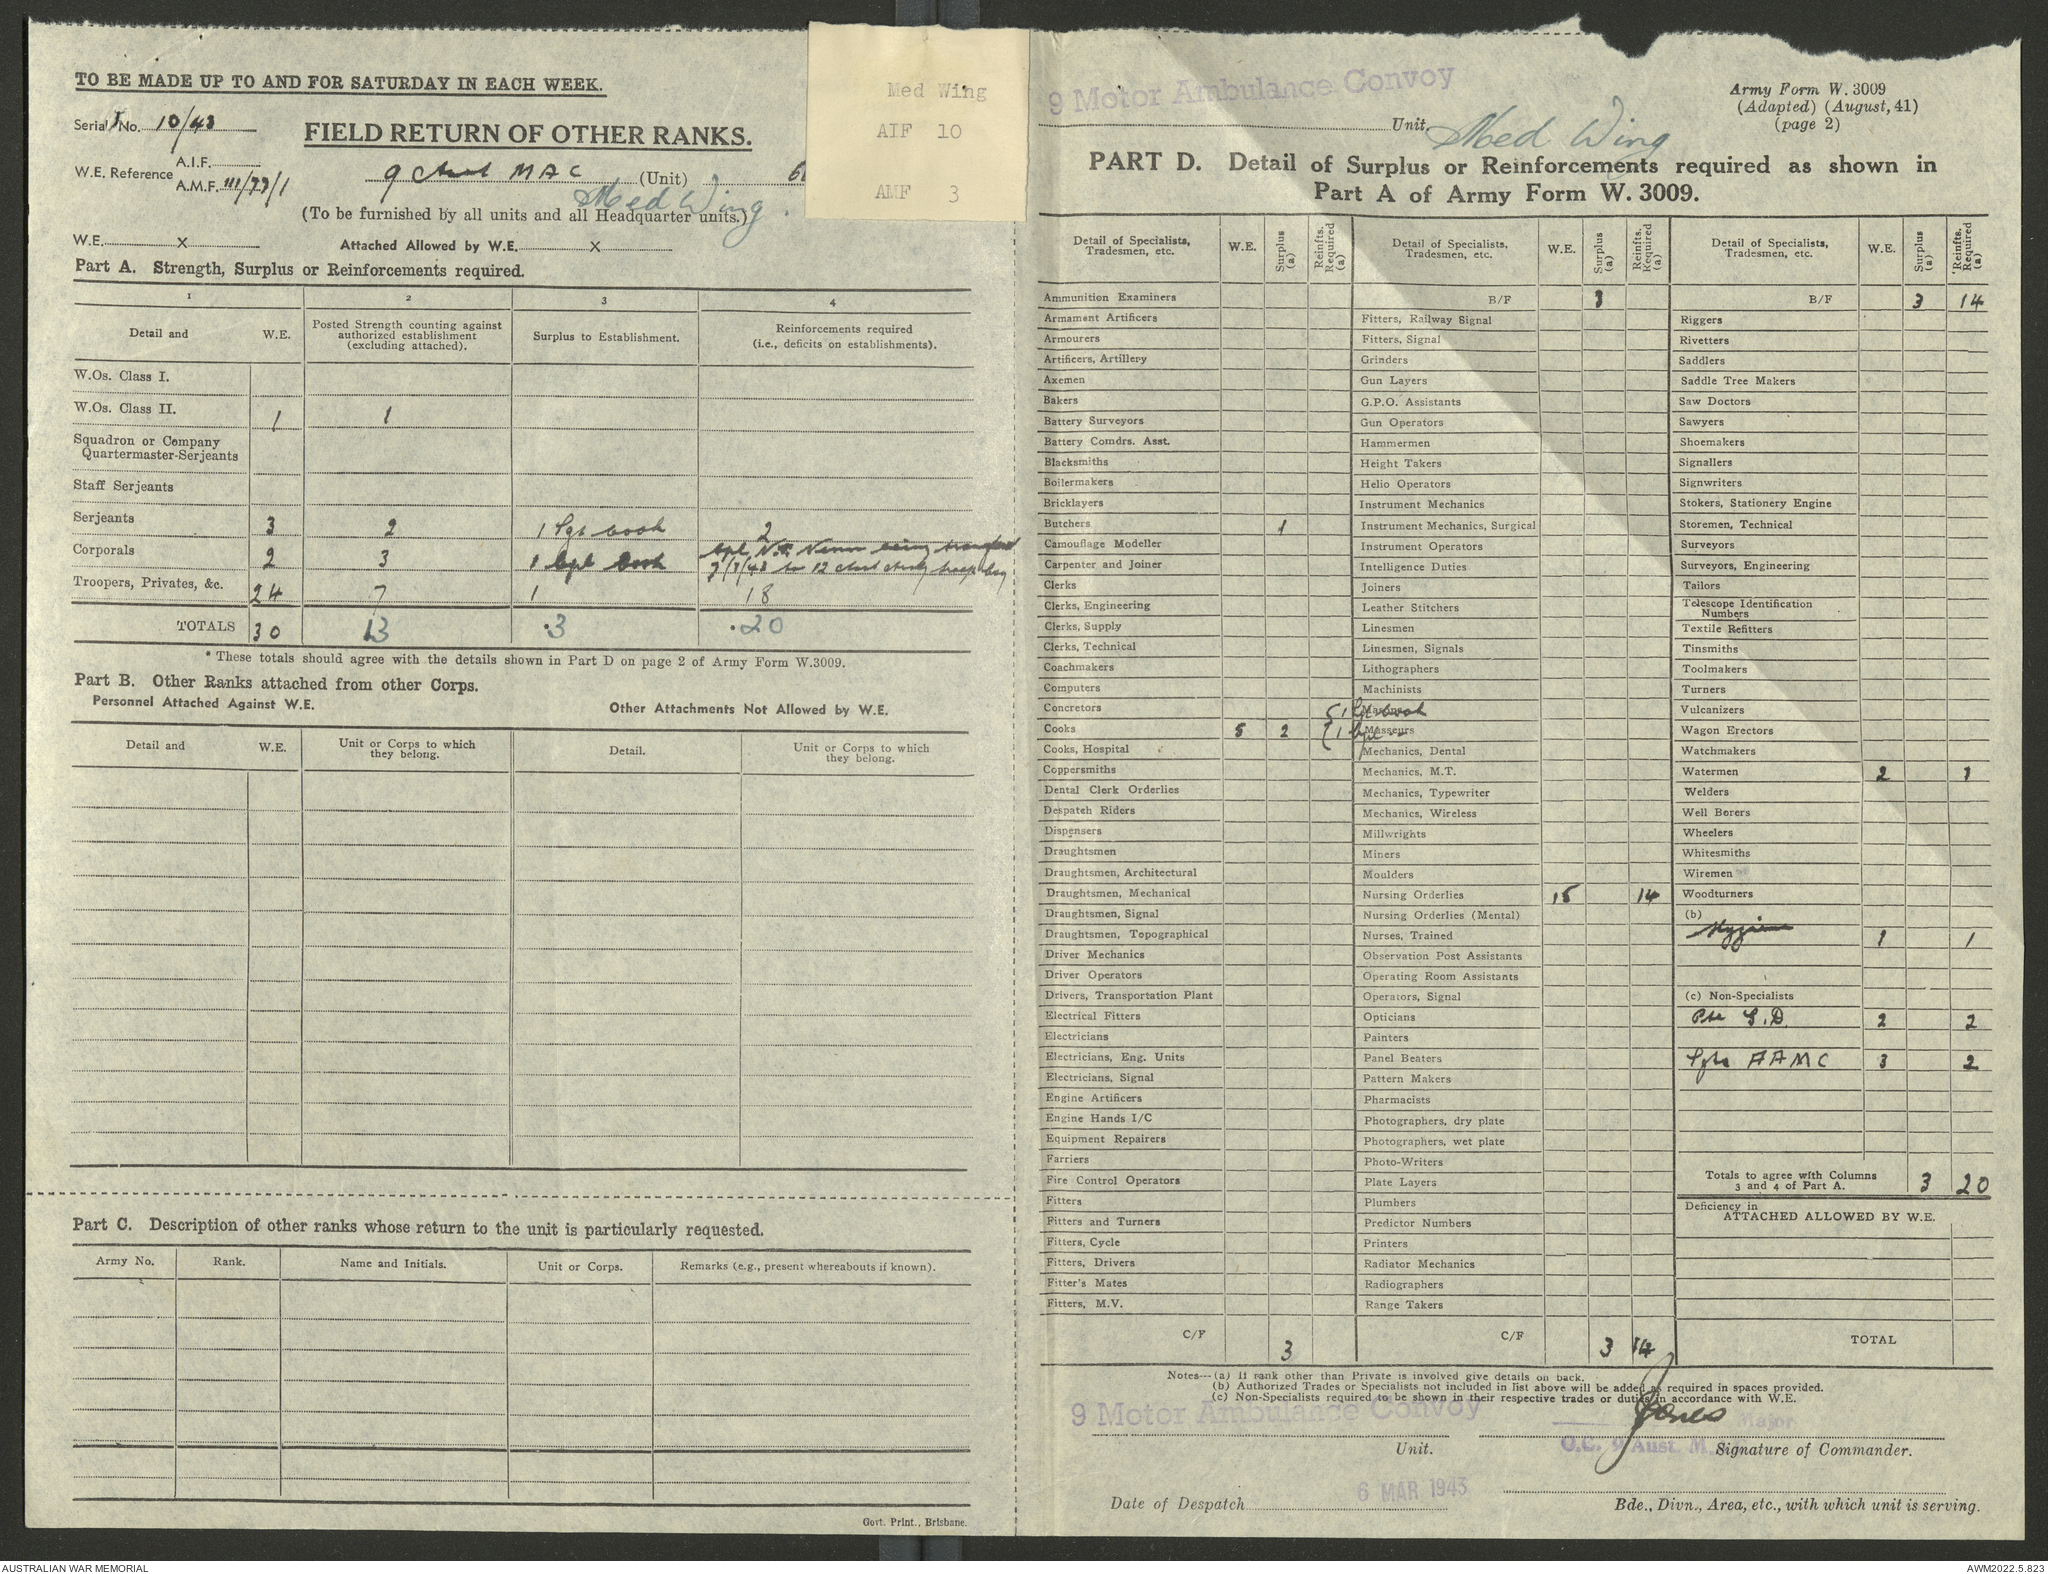 TO BE MADE UP TO AND FOR SATURDAY IN EACH WEEK.
Serial No. 10/43
FIELD RETURN OF OTHER RANKS.
W.E. Reference A.I.F.
A.M.F. III/79/1
9 Aust MAC (Unit)
Med Wing.
(To be furnished by all units and all Headquarter units.)
Med Wing
AIF 10
AMF 3
W.E. x Attached Allowed by W.E. x
Part A. Strength, Surplus or Reinforcements required.
1 2 3 4
Detail and W.E. Posted Strength counting against authorized establishment (excluding attached). Surplus to Establishment. Reinforcements required (i.e., deficits on establishments).
W.Os. Class I.
W.Os. Class II. 1 1
Squadron or Company
Quartermaster-Serjeants
Staff Serjeants
Serjeants 3 2 1 Sgt Cook 2
Corporals 2 3 1 Cpl Cook
Troopers, Privates, &c. 24 7 1 18
TOTALS 30 13 .3 .20
* These totals should agree with the details shown in Part D on page 2 of Army Form W.3009.
Part B. Other Ranks attached from other Corps.
Personnel Attached Against W.E. Other Attachments Not Allowed by W.E.
Detail and W.E. Unit or Corps to which they belong. Detail. Unit or Corps to which they belong.
Part C. Description of other ranks whose return to the unit is particularly requested.
Army No. Rank. Name and Initials. Unit or Corps. Remarks (e.g., present whereabouts if known).
Govt. Print., Brisbane.
9 Motor Ambulance Convoy
Unit. Med Wing
Army Form W. 3009
(Adapted) (August, 41)
(page 2)
PART D. Detail of Surplus or Reinforcements required as shown in
Part A of Army Form W. 3009.
Detail of Specialists, Tradesmen, etc. W.E. Surplus (a) Reinfts. Required (a)
Ammunition Examiners
Armament Artificers
Armourers
Artificers, Artillery
Axemen
Bakers
Battery Surveyors
Battery Comdrs. Asst.
Blacksmiths
Boilermakers
Bricklayers
Butchers 1
Camouflage Modeller
Carpenter and Joiner
Clerks
Clerks, Engineering
Clerks, Supply
Clerks, Technical
Coachmakers
Computers
Concretors
Cooks 5 2 { 1 Sgt Cook
1 Cpl "
Cooks, Hospital
Coppersmiths
Dental Clerk Orderlies
Despatch Riders
Dispensers
Draughtsmen
Draughtsmen, Architectural
Draughtsmen, Mechanical
Draughtsmen, Signal
Draughtsmen, Topographical
Driver Mechanics
Driver Operators
Drivers, Transportation Plant
Electrical Fitters
Electricians
Electricians, Eng. Units
Electricians, Signal
Engine Artificers
Engine Hands I/C
Equipment Repairers
Farriers
Fire Control Operators
Fitters
Fitters and Turners
Fitters, Cycle
Fitters, Drivers
Fitter's Mates
Fitters, M.V.
C/F 3
Detail of Specialists, Tradesmen, etc. W.E. Surplus (a) Reinfts. Required (a)
B/F 3
Fitters, Railway Signal
Fitters, Signal
Grinders
Gun Layers
G.P.O. Assistants
Gun Operators
Hammermen
Height Takers
Helio Operators
Instrument Mechanics
Instrument Mechanics, Surgical
Instrument Operators
Intelligence Duties
Joiners
Leather Stitchers
Linesmen
Linesmen, Signals
Lithographers
Machinists
Masons
Masseurs
Mechanics, Dental
Mechanics, M.T.
Mechanics, Typewriter
Mechanics, Wireless
Millwrights
Miners
Moulders
Nursing Orderlies 15 14
Nursing Orderlies (Mental)
Nurses, Trained
Observation Post Assistants
Operating Room Assistants
Operators, Signal
Opticians
Painters
Panel Beaters
Pattern Makers
Pharmacists
Photographers, dry plate
Photographers, wet plate
Photo-Writers
Plate Layers
Plumbers
Predictor Numbers
Printers
Radiator Mechanics
Radiographers
Range Takers
C/F 3 14
Detail of Specialists, Tradesmen, etc. W.E. Surplus (a) Reinfts. Required (a)
B/F 3 14
Riggers
Rivetters
Saddlers
Saddle Tree Makers
Saw Doctors
Sawyers
Shoemakers
Signallers
Signwriters
Stokers, Stationery Engine
Storemen, Technical
Surveyors
Surveyors, Engineering
Tailors
Telescope Identification
Numbers
Textile Refitters
Tinsmiths
Toolmakers
Turners
Vulcanizers
Wagon Erectors
Watchmakers
Watermen 2 1
Welders
Well Borers
Wheelers
Whitesmiths
Wiremen
Woodturners
(b)
Hygiene 1 1
(c) Non-Specialists
Pte G.D. 2 2
Sgts AAMC 3 2
Totals to agree with Columns
3 and 4 of Part A. 3 20
Deficiency in
ATTACHED ALLOWED BY W.E.
TOTAL
Notes---(a) If rank other than Private is involved give details on back.
(b) Authorized Trades or Specialists not included in list above will be added as required in spaces provided.
(c) Non-Specialists required to be shown in their respective trades or duties in accordance with W.E.
9 Motor Ambulance Convoy
Unit.
Jones Major
O.C. 9 Aust. M.
Signature of Commander.
Date of Despatch 6 MAR 1943
Bde., Divn., Area, etc., with which unit is serving.
AUSTRALIAN WAR MEMORIAL
AWM2022.5.823